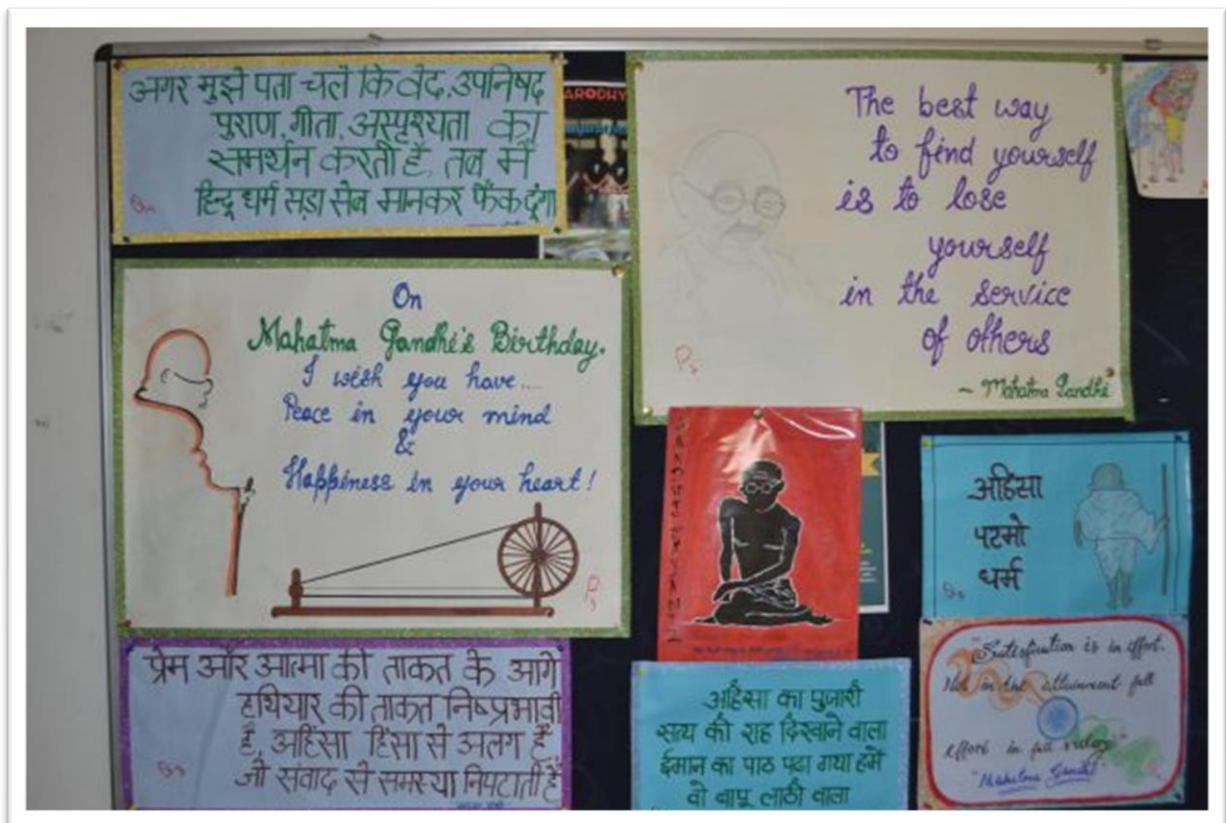 अगर मुझे पता चले कि वेद, उपनिषद
पुराण, गीता, अस्पृश्यता का
समर्थन करती है, तब मैं
हिन्दू धर्म सड़ा सेब मानकर फेंक दूंगा
ARODHY
The best way
to find yourself
is to lose
yourself
in the service
of others
~ Mahatma Gandhi
On
Mahatma Gandhi's Birthday.
I wish you have....
Peace in your mind
&
Happiness in your heart!
GANDHI JAYANTI
अहिंसा
परमो
धर्म
प्रेम और आत्मा की ताकत के आगे
हथियार की ताकत निष्प्रभावी
है, अहिंसा हिंसा से अलग है,
जो संवाद से समस्या निपटाती है
अहिंसा का पुजारी
सत्य की राह दिखाने वाला
ईमान का पाठ पढ़ा गया हमें
वो बापू लाठी वाला
"Satisfaction is in effort.
Not in the attainment full
effort in full victory"
"Mahatma Gandhi